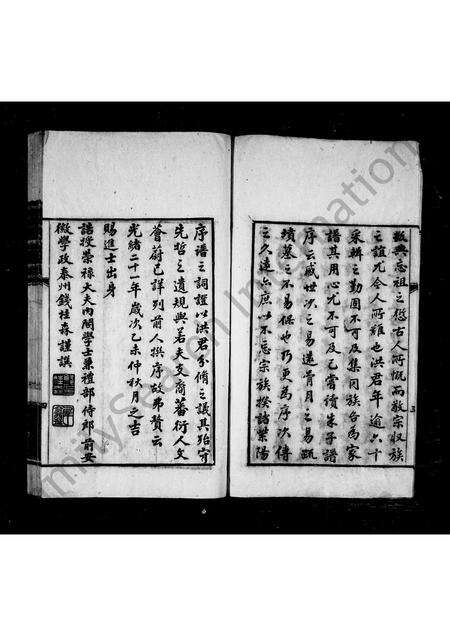 數典忘祖之愆古人所慨而敬宗收族
之誼尤令人所難也洪君年逾六十
采輯之勤固不可及集同族合為家
譜其用心尤不可及已嘗讀朱子譜
序云感世次之易遠骨月之易疏
墳墓之不易保也乃更為序次傳
之久遠庶以不忘宗族搀諸紫陽
序譜之詞證以洪君分脩之議其殆守
先哲之遺規與若夫支裔蕃衍人文
薈蔚已詳列前人撰序故弗贅云
光緒二十一年歲次乙未仲秋月之吉
賜進士出身
誥授榮祿大夫內閣學士兼禮部侍郎前安
徽學政泰州錢桂森謹譔
三